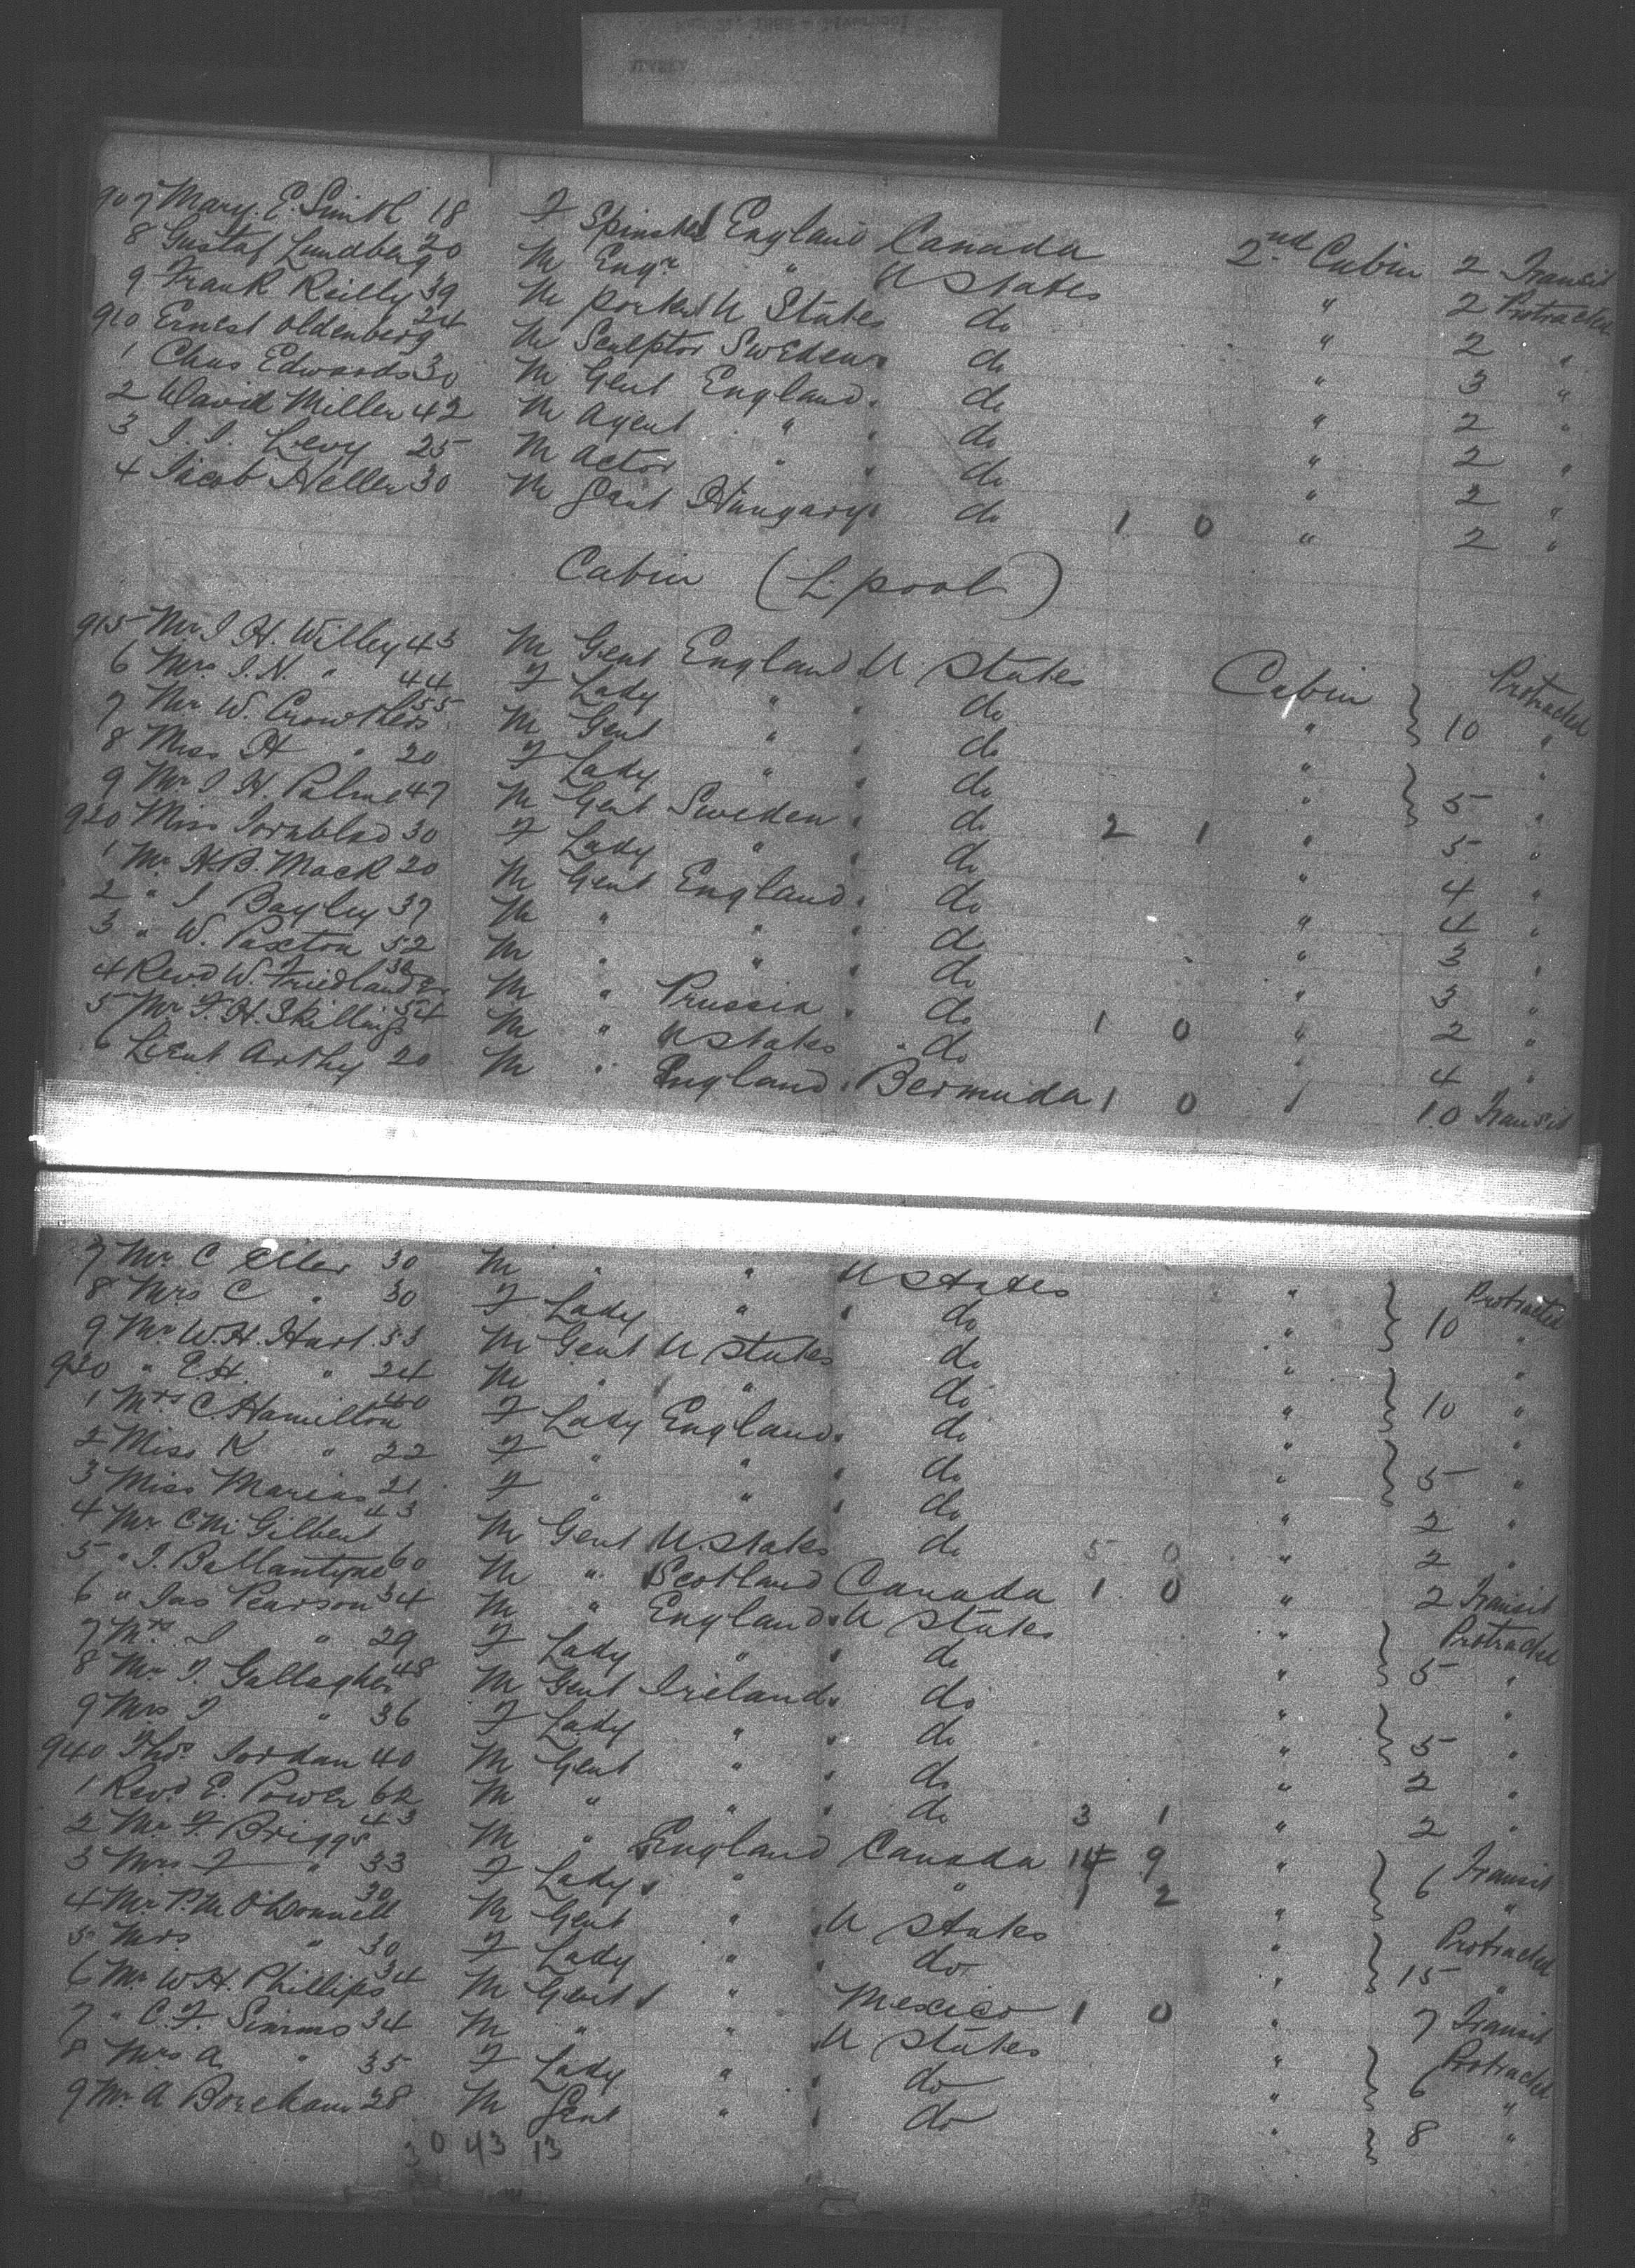 907 Mary. E. Smith 18 F Spinster England Canada 2nd Cabin 2 Transit
8 Gustaf Lundberg 20 M Engr " U States " 2 Protracted
9 Frank Reilly 39 M U States do " 2 "
910 Ernest Oldenberg 24 M Sculptor Sweden do " 3 "
1 Chas Edwards 30 M Gent England " do " 2 "
2 David Miller 42 M Agent " " do " 2 "
3 I. I. Levy 25 M Actor " " do " 2 "
4 Jacob Heller 30 M Gent Hungary " do 1 0 " 2 "
Cabin (L.pool)
915 Mr J H. Willey 43 M Gent England U States Cabin Protracted
6 Mrs J. N. " 44 F Lady " " do " } 10 "
7 Mr W. Crowthers 55 M Gent " " do " "
8 Miss H " 20 F Lady " " do " } 5 "
9 Mr J H. Palme 47 M Gent Sweden " do 2 1 " 5 "
920 Miss 30 F Lady " " do " 4 "
1 Mr H.B. Mack 20 M Gent England " do " 4 "
2 " J Bayley 37 M " " " do " 3 "
3 " W. Paxton 52 M " " " do " 3 "
4 Revd W. Friedlander M " Prussia " do 1 0 " 2 "
5 Mr F. H. Skillings 54 M " U States " do " 4 "
6 Lieut Arthy 20 M " England " Bermuda 1 0 " 10 Transit
7 Mr C Eller 30 M " " U States " Protracted
8 Mrs C " 30 F Lady " " do " } 10 "
9 Mr W. H. Hart 53 M Gent U States do " "
930 " E.H. " 24 M " " do " } 10 "
1 Mrs C. Hamilton 40 F Lady England " do " "
2 Miss K " 22 F " " " do " } 5 "
3 Miss 21 F " " " do " 2 "
4 Mr C. M Gilbert 43 M Gent U. States do 5 0 " 2 "
5 " J. Ballantyne 60 M " Scotland Canada 1 0 " 2 Transit
6 " Jas Pearson 34 M " England " U States " Protracted
7 Mrs J " 29 F Lady " " do " } 5 "
8 Mr J. Gallagher 48 M Gent Ireland " do " "
9 Mrs J " 36 F Lady " " do " } 5 "
940 Thos Jordan 40 M Gent " " do " 2 "
1 Revd E. Power 62 M " " " do 3 1 " 2 "
2 Mr F. Briggs 43 M " England Canada 14 9 " Transit
3 Mrs F " 33 F Lady " " 1 2 " } 6 "
4 Mr P. M O'Donnell 30 M Gent " " U States " Protracted
5 Mrs " 30 F Lady " " do " } 15 "
6 Mr W. H. Phillips 34 M Gent " Mexico 1 0 " 7 Transit
7 " C. F. Simms 34 M " " " U States " Protracted
8 Mrs A " 35 F Lady " " do " } 6 "
9 Mr A Boreham 28 M Gent " " do " } 8 "
30 43 13